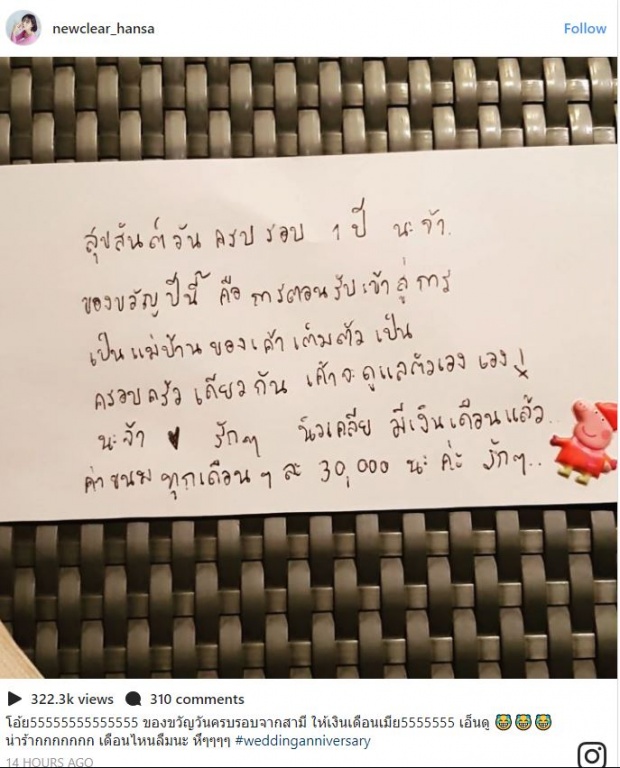 newclear_hansa
Follow
สุขสันต์วัน ครบรอบ 1 ปี นะจ้า.
ของขวัญปีนี้ คือ การตอนรับเข้าสู่การ
เป็นแม่บ้านของเค้าเต็มตัว เป็น
ครอบครัวเดียวกัน เค้าจะดูแลตัวเอง เอง!
นะจ้า ♥ รักๆ นิวเคลีย มีเงินเดือนแล้ว..
ค่าขนมทุกเดือนๆ ละ 30,000 นะ ค่ะ รักๆ..
322.3k views 310 comments
โอ้ย55555555555555 ของขวัญวันครบรอบจากสามี ให้เงินเดือนเมีย5555555 เอ็นดู 😂😂😂
น่าร้ากกกกกกก เดือนไหนลืมนะ หึๆๆๆๆ #weddinganniversary
14 HOURS AGO